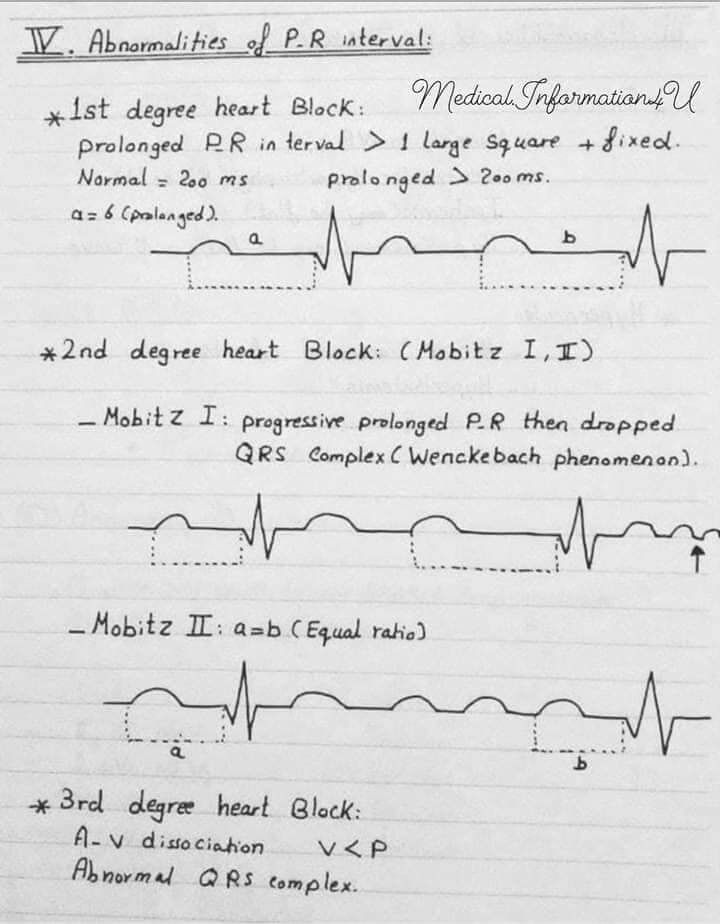 IV. Abnormalities of P-R interval:
Medical.Information4U
* 1st degree heart Block:
prolonged P-R interval > 1 large square + fixed.
Normal = 200 ms prolonged > 200 ms.
a = 6 (prolonged).
a b
* 2nd degree heart Block: (Mobitz I, II)
- Mobitz I: progressive prolonged P-R then dropped
QRS Complex (Wenckebach phenomenon).
- Mobitz II: a=b (Equal ratio)
a b
* 3rd degree heart Block:
A-V dissociation V < P
Abnormal QRS complex.